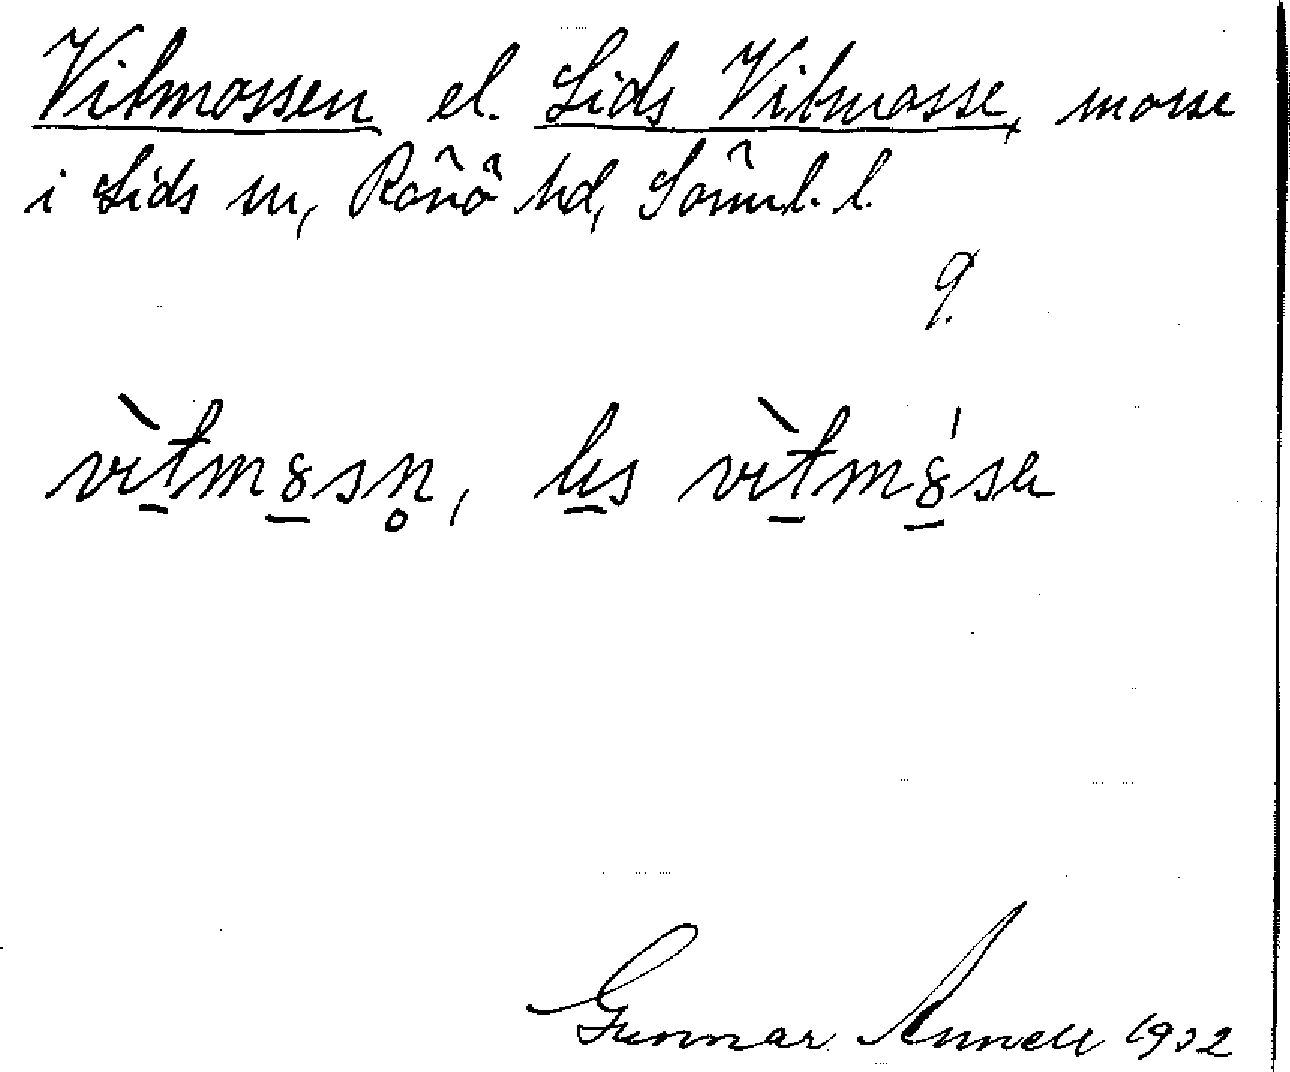 Vitmossen el. Lids Vitmosse, mosse
i Lids sn, Rönö hd, Sörml. l.
9.
vìtmȣsn̥, lis vìtmȣ́se
Gunnar Annell 1932